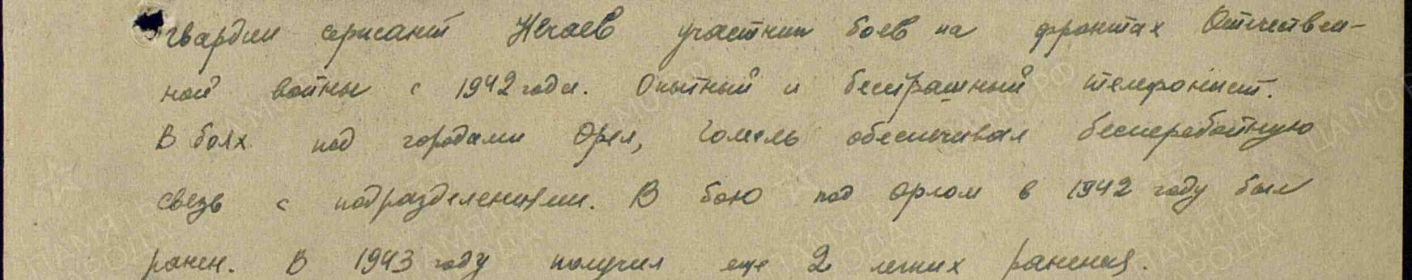 гвардии сержант Нечаев участник боев на фронтах Отечествен-
ной войны с 1942 года. Опытный и бесстрашный телефонист.
В боях под городами Орел, Гомель обеспечивал бесперебойную
связь с подразделениями. В бою под Орлом в 1942 году был
ранен. В 1943 году получил еще 2 легких ранения.